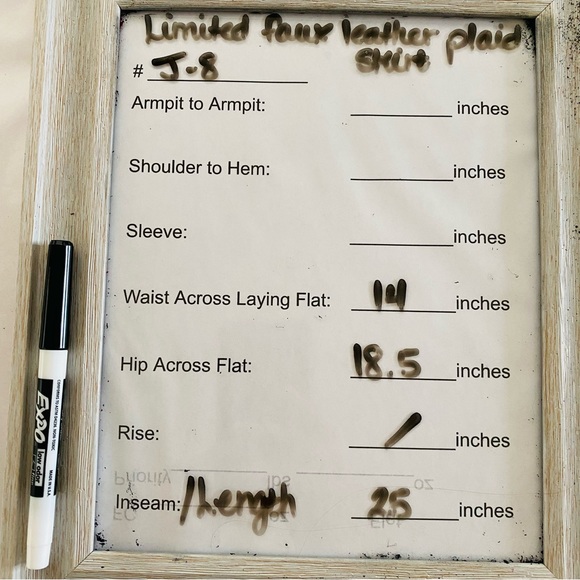 Limited faux leather plaid
skirt
# J-8
Armpit to Armpit: inches
Shoulder to Hem: inches
Sleeve: inches
Waist Across Laying Flat: 14 inches
Hip Across Flat: 18.5 inches
Rise: / inches
Priority lbs oz
Inseam: /Length 25 inches
EXPO
low odor